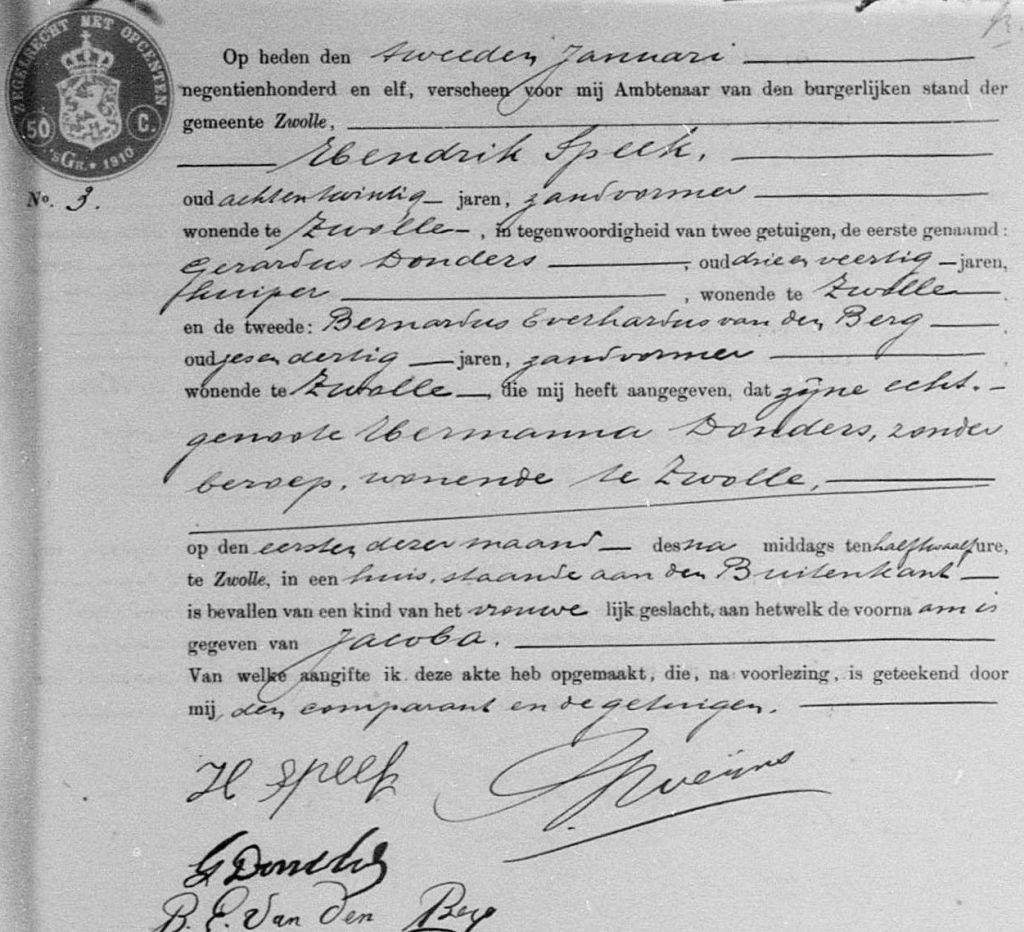 ZEGELRECHT MET OPCENTEN
50 C.
'sGR. • 1910
Op heden den tweeden Januari
negentienhonderd en elf, verscheen voor mij Ambtenaar van den burgerlijken stand der
gemeente Zwolle,
Hendrik Speek,
No. 3.
oud achtentwintig jaren, zandvormer
wonende te Zwolle, in tegenwoordigheid van twee getuigen, de eerste genaamd:
Gerardus Donders, oud drie en veertig jaren,
kuiper, wonende te Zwolle
en de tweede: Bernardus Everhardus van den Berg
oud zes en dertig jaren, zandvormer
wonende te Zwolle, die mij heeft aangegeven, dat zijne echt-
genoote Hermanna Donders, zonder
beroep, wonende te Zwolle,
op den eersten dezer maand des na middags ten half twaalf ure,
te Zwolle, in een huis, staande aan den Buitenkant
is bevallen van een kind van het vrouwe lijk geslacht, aan hetwelk de voorna am is
gegeven van Jacoba.
Van welke aangifte ik deze akte heb opgemaakt, die, na voorlezing, is geteekend door
mij, den comparant en de getuigen.
H Speek
G Donders
B. E. Van den Berg